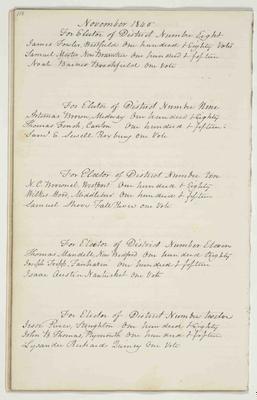 November 1840
For Elector of District Number Eight
James Fowler, Westfield One hundred & Eighty Votes
Samuel Mixter New Braintree One hundred & fifteen
Noah Brookfield One Vote
For Elector of District Number Nine
Artemas Brown, Medway One hundred & Eighty
Thomas French, Canton One hundred & fifteen
Saml E. Sewell Roxbury One Vote
For Elector of District Number Ten
N. C. Brownel, Westport One hundred & Eighty
Wilkes Wood, Middleboro One hundred & fifteen
Samuel Shove Fall River one vote
For Elector of District Number Eleven
Thomas Mandell, New Bedford One hundred & Eighty
Joseph Tripp, Fairhaven One hundred & fifteen
Isaac Austin Nantucket One Vote
For Elector of District Number Twelve
Jesse Pierce, Stoughton One hundred & Eighty
John B. Thomas, Plymouth One hundred & fifteen
Lysander Richards Quincy One Vote